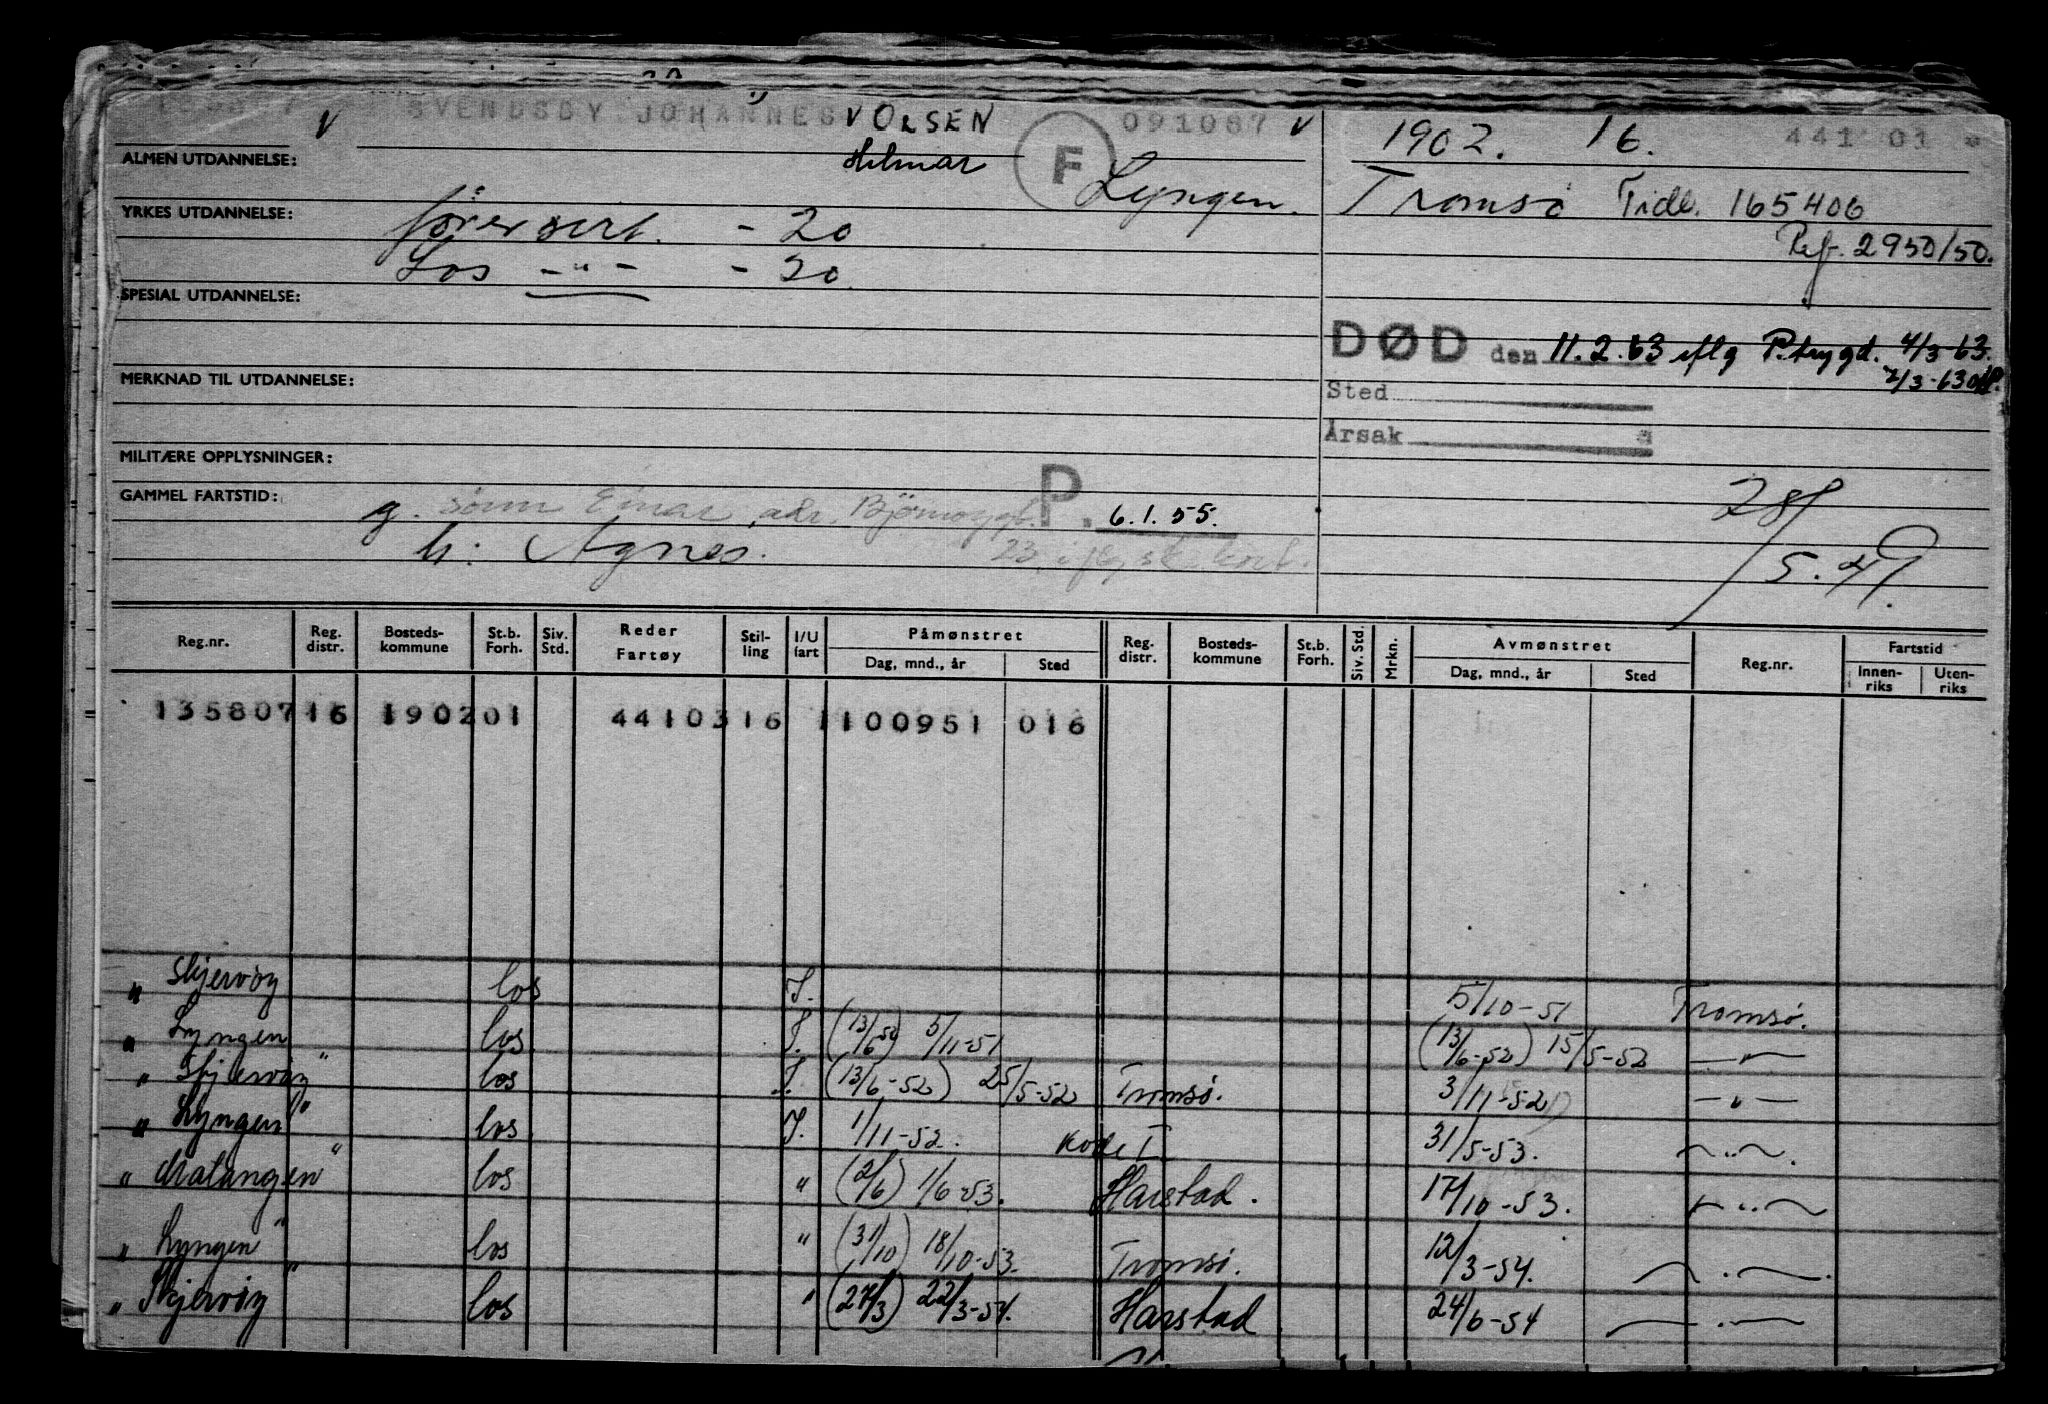 SVENDSBY JOHANNES V OLSEN 091087 V 1902. 16. 441 01
V
ALMEN UTDANNELSE: Hilmar F Lyngen. Tromsø Tidl. 165406
YRKES UTDANNELSE: førersert. - 20 Ref. 2950/50.
Los -"- - 20
SPESIAL UTDANNELSE:
DØD den 11.2.63 iflg P.trygd. 4/3-63.
MERKNAD TIL UTDANNELSE: 7/3-63
Sted
Årsak
MILITÆRE OPPLYSNINGER:
GAMMEL FARTSTID: g. sønn Einar, adr. P. 6.1.55. 28/5.49.
h: Agnes. 23 iflg
Reg.nr. Reg. distr. Bosteds- kommune St.b. Forh. Siv. Std. Reder Fartøy Stil- ling I/U fart Påmønstret Dag, mnd., år Sted Reg. distr. Bosteds- kommune St.b. Forh. Siv. Std. Mrkn. Avmønstret Dag, mnd., år Sted Reg.nr. Fartstid Innen- riks Uten- riks
135807 16 1902 01 4410316 1 100951 016
" Skjervøy los I. 5/10-51 Tromsø.
" Lyngen los I. 5/11-51 (13/6-52) 15/5-52 -"-
" Skjervøy" los I. (13/6-52) 25/5-52 Tromsø. 3/11-52 -"-
" Lyngen" los I. 1/11-52. Kode I 31/5-53. -"-.
" Malangen" los " (2/6) 1/6-53. Harstad. 17/10-53. -"-
" Lyngen" los " (31/10) 18/10-53. Tromsø. 12/3-54. -"-.
" Skjervøy" los " (27/3) 22/3-54. Harstad 24/6-54 -"-